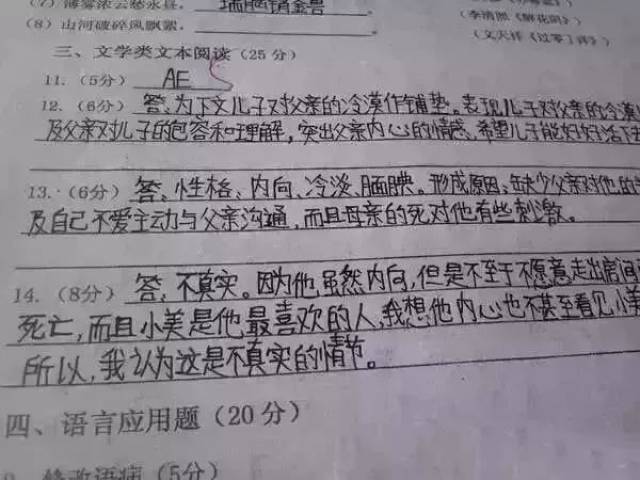 (7) 薄雾浓云愁永昼, 瑞脑销金兽 (李清照《醉花阴》)
(8) 山河破碎风飘絮, (文天祥《过零丁洋》)
三、文学类文本阅读 (25 分)
11. (5分) AE
12. (6分) 答,为下文儿子对父亲的冷漠作铺垫。表现儿子对父亲的冷漠
及父亲对儿子的包容和理解,突出父亲内心的情感,希望儿子能好好活下去
13. (6分) 答、性格、内向、冷淡、腼腆。形成原因:缺少父亲对他的
及自己不爱主动与父亲沟通,而且母亲的死对他有些刺激。
14. (8分) 答,不真实。因为他虽然内向,但是不至于不愿意走出房间
死亡,而且小美是他最喜欢的人,我想他内心也不甚至看见小美
所以,我认为这是不真实的情节。
四、语言应用题 (20 分)
修改语病 (5分)